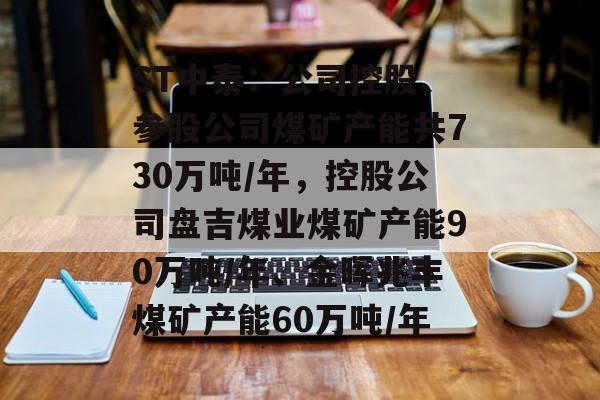 ST中泰：公司控股、
参股公司煤矿产能共7
30万吨/年，控股公
司盘吉煤业煤矿产能9
0万吨/年、金晖兆丰
煤矿产能60万吨/年